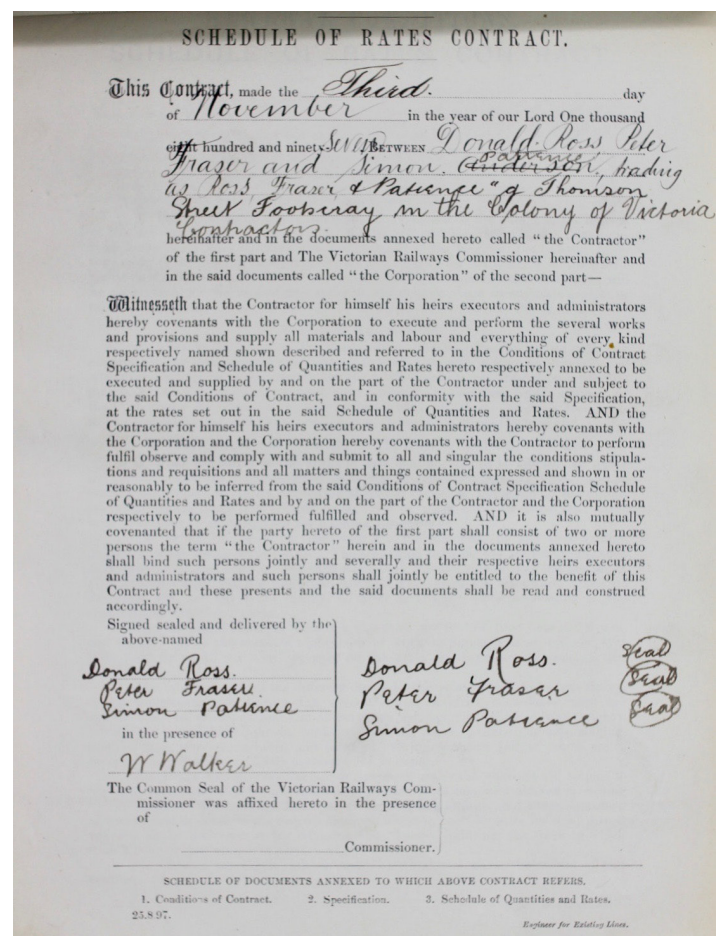 SCHEDULE OF RATES CONTRACT.
This Contract, made the Third. day
of November in the year of our Lord One thousand
eight hundred and ninety-Seven BETWEEN Donald Ross Peter
Patience
Fraser and Simon Anderson, trading
as Ross, Fraser & Patience" of Thomson
Street Footscray in the Colony of Victoria
Contractors.
hereinafter and in the documents annexed hereto called "the Contractor"
of the first part and The Victorian Railways Commissioner hereinafter and
in the said documents called "the Corporation" of the second part—
Witnesseth that the Contractor for himself his heirs executors and administrators
hereby covenants with the Corporation to execute and perform the several works
and provisions and supply all materials and labour and everything of every kind
respectively named shown described and referred to in the Conditions of Contract
Specification and Schedule of Quantities and Rates hereto respectively annexed to be
executed and supplied by and on the part of the Contractor under and subject to
the said Conditions of Contract, and in conformity with the said Specification,
at the rates set out in the said Schedule of Quantities and Rates. AND the
Contractor for himself his heirs executors and administrators hereby covenants with
the Corporation and the Corporation hereby covenants with the Contractor to perform
fulfil observe and comply with and submit to all and singular the conditions stipula-
tions and requisitions and all matters and things contained expressed and shown in or
reasonably to be inferred from the said Conditions of Contract Specification Schedule
of Quantities and Rates and by and on the part of the Contractor and the Corporation
respectively to be performed fulfilled and observed. AND it is also mutually
covenanted that if the party hereto of the first part shall consist of two or more
persons the term "the Contractor" herein and in the documents annexed hereto
shall bind such persons jointly and severally and their respective heirs executors
and administrators and such persons shall jointly be entitled to the benefit of this
Contract and these presents and the said documents shall be read and construed
accordingly.
Signed sealed and delivered by the
above-named
Donald Ross.
Peter Fraser.
Simon Patience
in the presence of
W Walker
Donald Ross. Seal
Peter Fraser Seal
Simon Patience Seal
The Common Seal of the Victorian Railways Com-
missioner was affixed hereto in the presence
of
Commissioner.
SCHEDULE OF DOCUMENTS ANNEXED TO WHICH ABOVE CONTRACT REFERS.
1. Conditions of Contract. 2. Specification. 3. Schedule of Quantities and Rates.
25.8.97.
Engineer for Existing Lines.